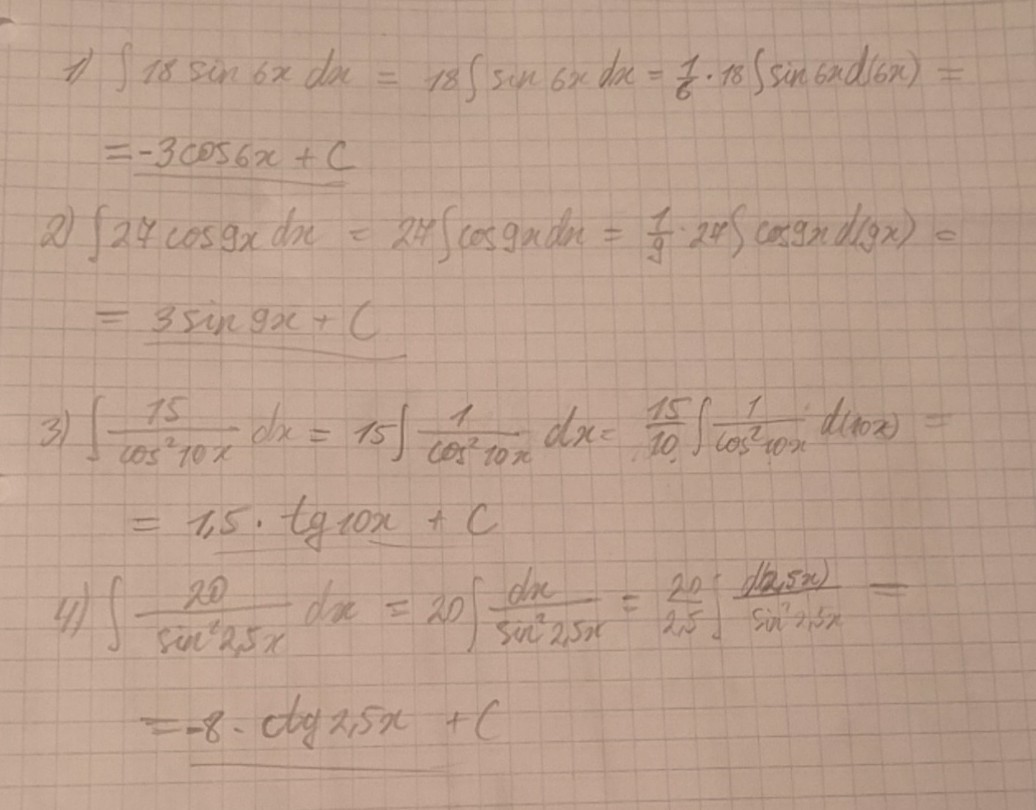 1) ∫ 18 sin 6x dx = 18 ∫ sin 6x dx = 1/6 · 18 ∫ sin 6x d(6x) =
= -3 cos 6x + C
2) ∫ 27 cos 9x dx = 27 ∫ cos 9x dx = 1/9 · 27 ∫ cos 9x d(9x) =
= 3 sin 9x + C
3) ∫ 15/cos²10x dx = 15 ∫ 1/cos²10x dx = 15/10 ∫ 1/cos²10x d(10x) =
= 1,5 · tg 10x + C
4) ∫ 20/sin²2,5x dx = 20 ∫ dx/sin²2,5x = 20/2,5 ∫ d(2,5x)/sin²2,5x =
= -8 · ctg 2,5x + C